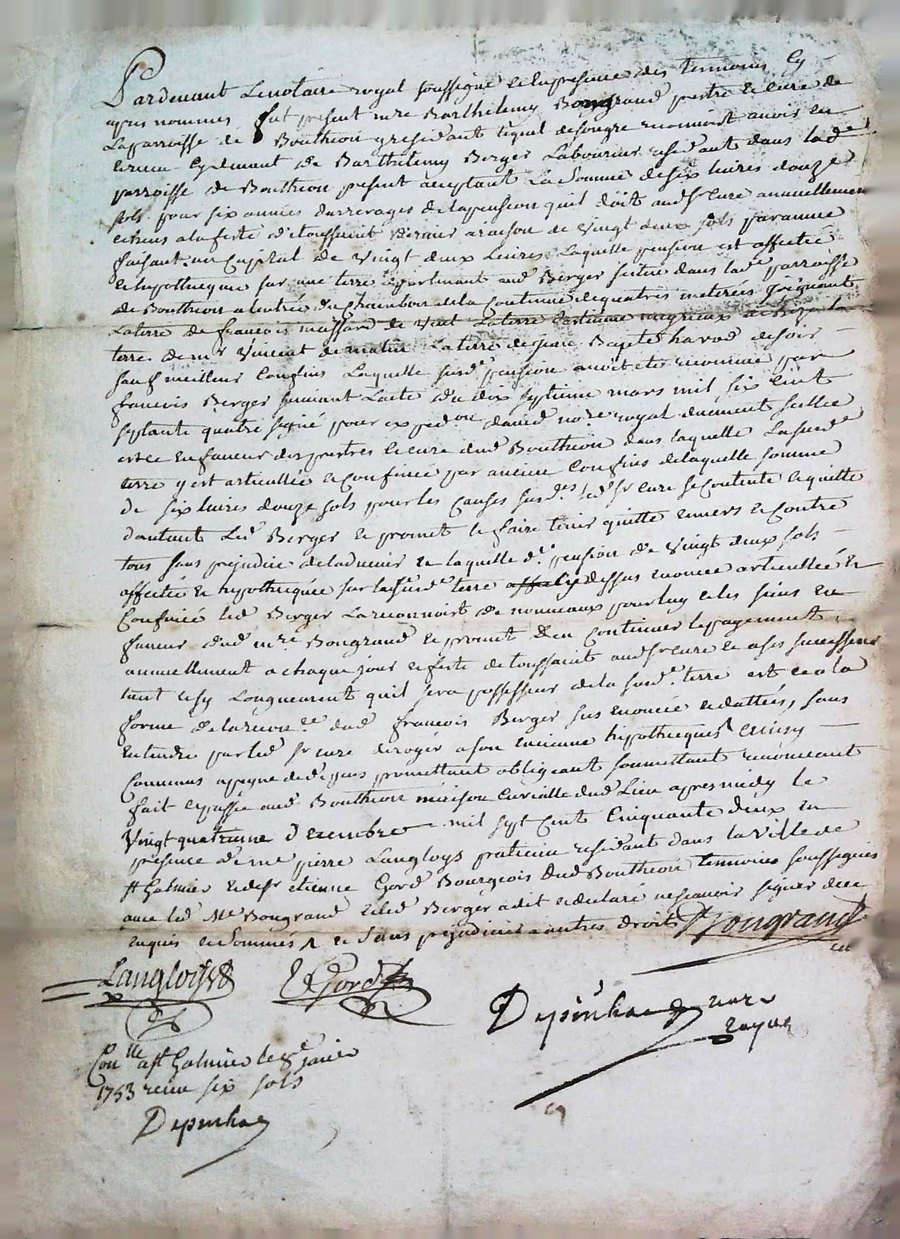 Pardevant Le notaire royal soussigné et en presence des temoins Cy
apres nommes fut present mre Barthelemy Bongrand prestre et cure de
La parroisse de Bouthéon y residant lequel de son gre reconnoit avoir eu
et receu Cy devant de Barthelemy Berger Laboureur residant dans lad.e
parroisse de Bouthéon present acceptant La Somme de six livres douze
sols pour six années d'arrerages de la pension quil doit aud sr cure annuellement
echeus a la feste de toussaint dernier a raison de vingt deux sols par année
faisant au Capital de Vingt deux Livres Laquelle pension est affectée
et hypothequée sur une terre appartenant aud Berger scituée dans lad.e parroisse
de Bouthéon a l'entrée de Chambon de la Contenue de quatres meterées joignant
La terre de françois massard de vent La terre d'estienne magnieux de Bize la
terre de mr Vincent de matin La terre de jean Bapte havard de soir
sauf meilleur Confins Laquelle susd.e pension avoit ete reconnue par
françois Berger suivant L'acte du dix septieme mars mil six cent
septante quatre signé pour exped.on david no.re royal duement scellée
et ce en faveur des prestres et cure dud Bouthéon dans laquelle La susd.e
terre y est articullée et Confinée par ancien Confins de laquelle somme
de six livres douze sols pour les causes susd.es led.t sr cure se contente et quitte
d'autant Led. Berger et promet le faire tenir quitte envers et contre
tous sans prejudice de l'advenir et laquelle d.e pension de vingt deux sols
affectée et hypothequée sur la susd.e terre dessus enoncée articullée et
Confinée led Berger La reconnoit de nouveaux pour luy et les siens en
faveur dud mre Bongrand et promet d'en Continuer le payement
annuellement a chaque jour et feste de toussaints aud sr cure et a ses successeurs
tant et sy Longuement quil sera possesseur de la susd.e terre et ce a la
forme de la recon.ce dud françois Berger sus enoncée et dattées, sans
entendre par led sr cure deroger a son ancienne hypotheques Ainsy
Convenus a peyne de d. promettant obligeant soumettant renonceant
fait et passée aud Bouthéon maison Curialle dud Lieu apres midy le
Vingt quatrieme Decembre mil sept cent Cinquante deux en
presence de me pierre Langloys praticien residant dans la ville de
st Galmier et de sr etienne Gord Bourgeois dud Bouthéon temoins soussignés
avec led Me Bongrand et led Berger a dit et declaré ne scavoir signer de ce
enquis et sommés et sans prejudicier autres droits Bongrand
cure
Langloys EGord
Depinhac nore
royal
Con.lle a st Galmier le 8e janvier
1753 receu six sols
Depinhac